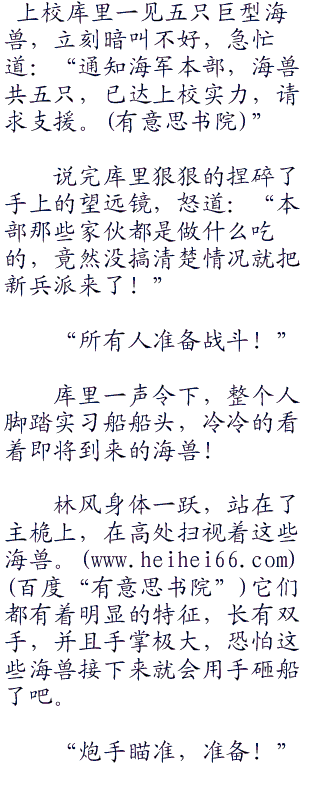 上校库里一见五只巨型海
兽，立刻暗叫不好，急忙
道：“通知海军本部，海兽
共五只，已达上校实力，请
求支援。(有意思书院)”
说完库里狠狠的捏碎了
手上的望远镜，怒道：“本
部那些家伙都是做什么吃
的，竟然没搞清楚情况就把
新兵派来了！”
“所有人准备战斗！”
库里一声令下，整个人
脚踏实习船船头，冷冷的看
着即将到来的海兽！
林风身体一跃，站在了
主桅上，在高处扫视着这些
海兽。(www.heihei66.com)
(百度“有意思书院”)它们
都有着明显的特征，长有双
手，并且手掌极大，恐怕这
些海兽接下来就会用手砸船
了吧。
“炮手瞄准，准备！”